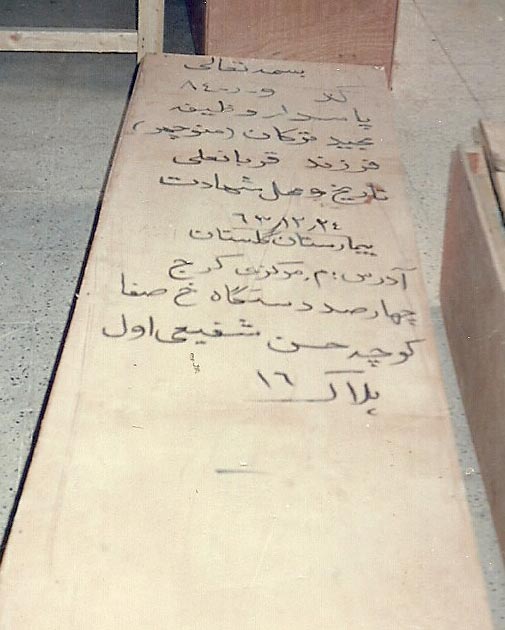 بسمه تعالی
کد و-ر-۸۴۰
پاسدار وظیفه
مجید ترکان (منوچهر)
فرزند قربانعلی
تاریخ و محل شهادت
۶۳/۱۲/۲۴
بیمارستان گلستان
آدرس: م. مرکزی کرج
چهارصد دستگاه خ صفا
کوچه حسن شفیعی اول
پلاک ۱۶